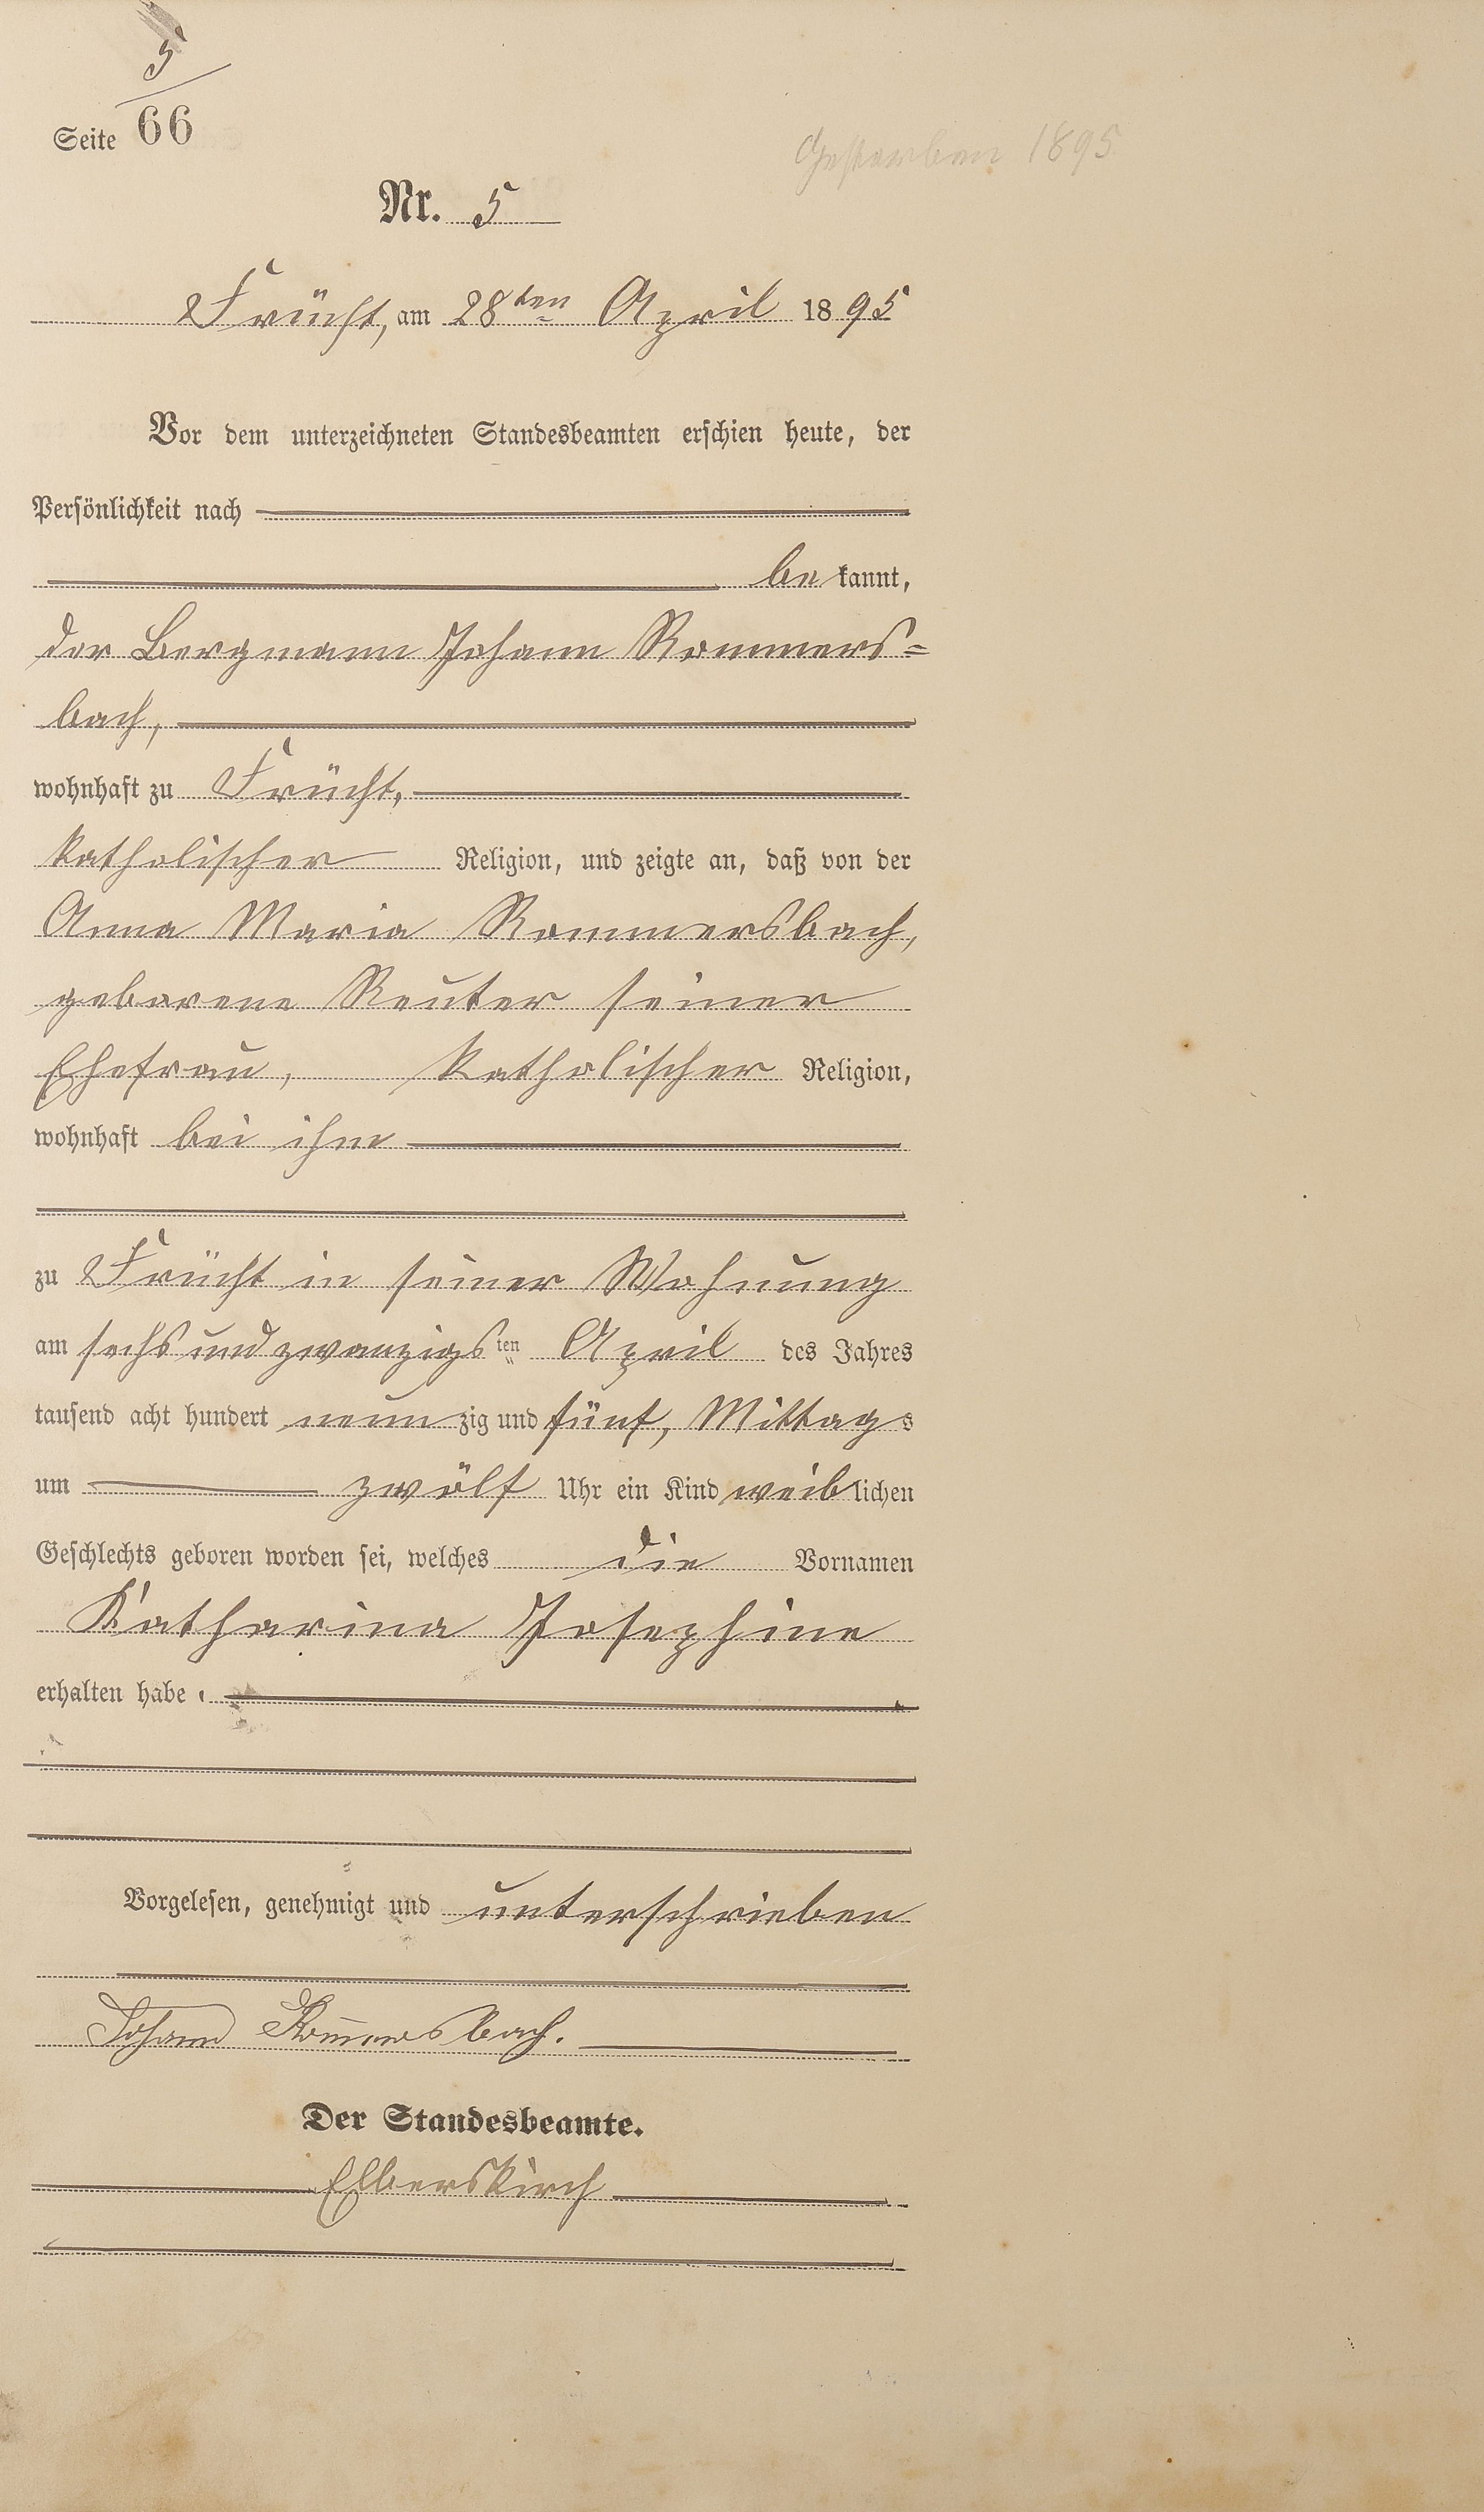 5
Seite 66
Gestorben 1895
Nr. 5
Frücht, am 28ten April 1895
Vor dem unterzeichneten Standesbeamten erschien heute, der
Persönlichkeit nach
bekannt,
der Bergmann Johann Rommers=
bach,
wohnhaft zu Frücht,
katholischer Religion, und zeigte an, daß von der
Anna Maria Rommersbach,
geborene Reuter seiner
Ehefrau, katholischer Religion,
wohnhaft bei ihm
zu Frücht in seiner Wohnung
am sechsundzwanzigsten April des Jahres
tausend acht hundert neunzig und fünf, Mittags
um zwölf Uhr ein Kind weiblichen
Geschlechts geboren worden sei, welches die Vornamen
Katharina Josephine
erhalten habe.
Vorgelesen, genehmigt und unterschrieben
Johann Rom̅ersbach.
Der Standesbeamte.
Elberskirch